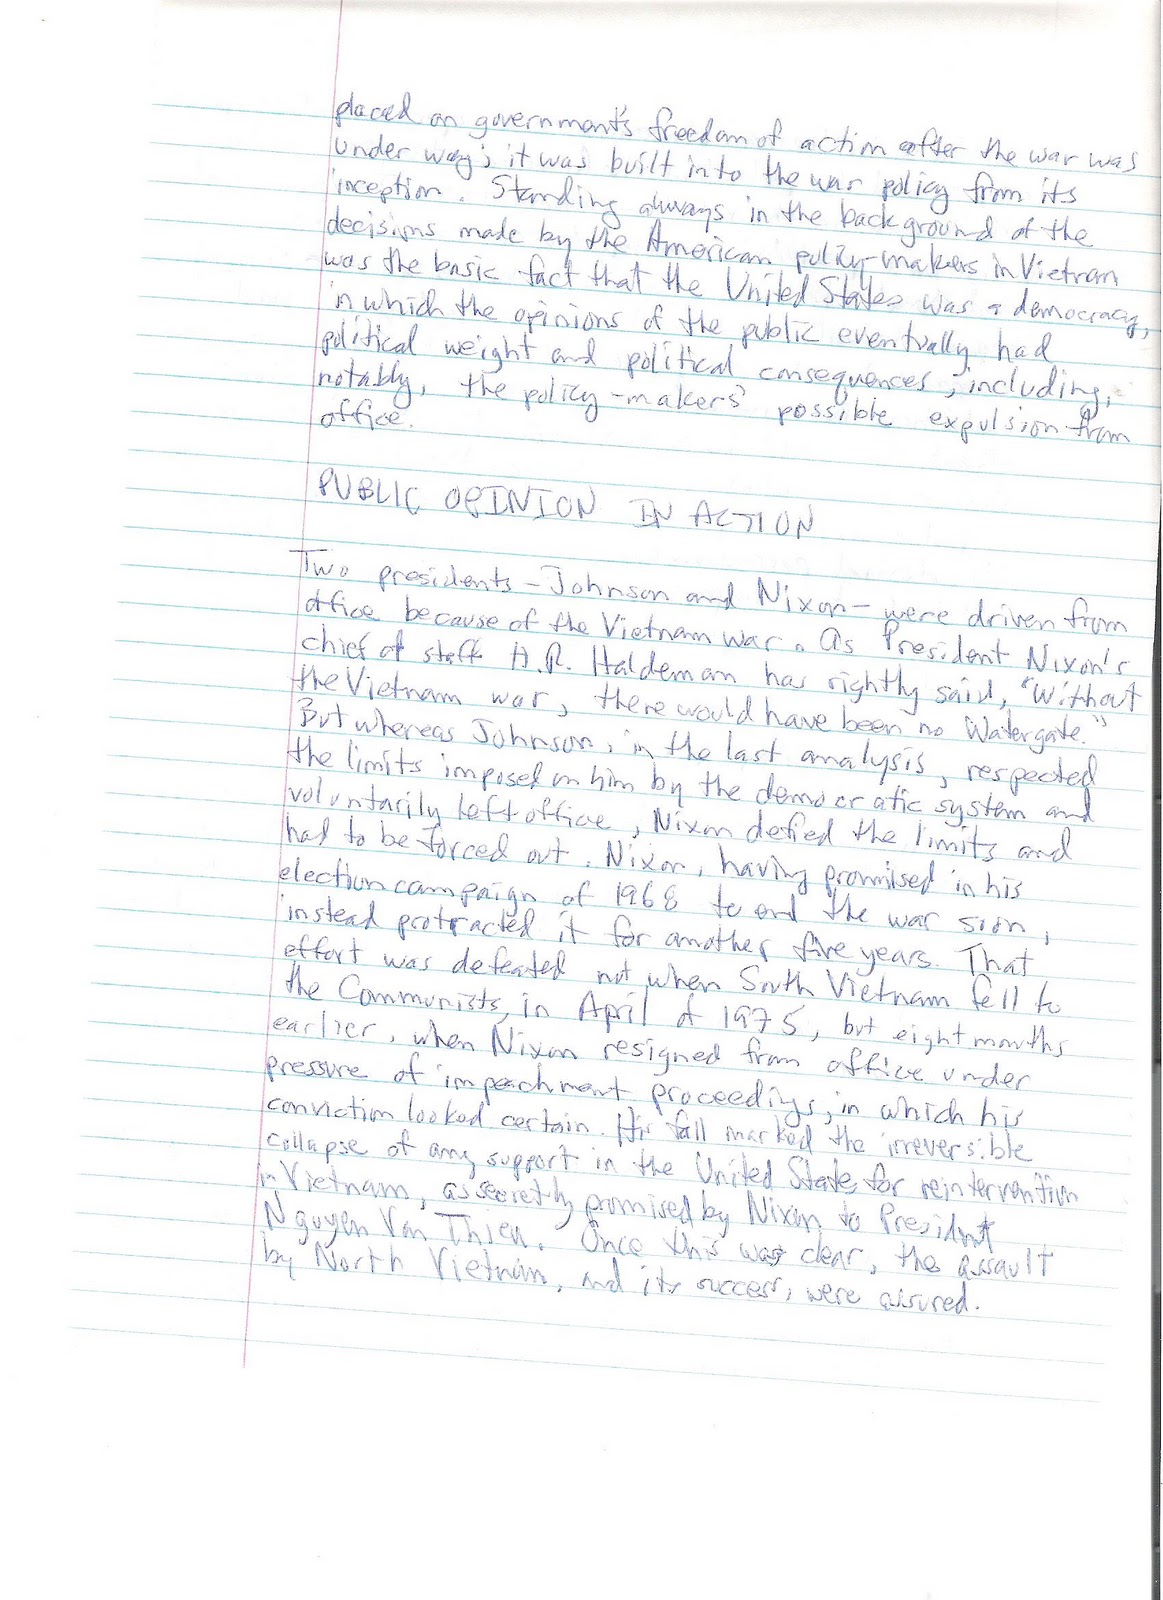 placed on government's freedom of action after the war was
under way; it was built into the war policy from its
inception. Standing always in the background of the
decisions made by the American policy-makers in Vietnam
was the basic fact that the United States was a democracy,
in which the opinions of the public eventually had
political weight and political consequences, including,
notably, the policy-makers' possible expulsion from
office.
PUBLIC OPINION IN ACTION
Two presidents - Johnson and Nixon - were driven from
office because of the Vietnam war. As President Nixon's
chief of staff H.R. Haldeman has rightly said, "Without
the Vietnam war, there would have been no Watergate."
But whereas Johnson, in the last analysis, respected
the limits imposed on him by the democratic system and
voluntarily left office, Nixon defied the limits and
had to be forced out. Nixon, having promised in his
election campaign of 1968 to end the war soon,
instead protracted it for another five years. That
effort was defeated not when South Vietnam fell to
the Communists, in April of 1975, but eight months
earlier, when Nixon resigned from office under
pressure of impeachment proceedings, in which his
conviction looked certain. His fall marked the irreversible
collapse of any support in the United States for reintervention
in Vietnam, as secretly promised by Nixon to President
Nguyen Van Thieu. Once this was clear, the assault
by North Vietnam, and its success, were assured.